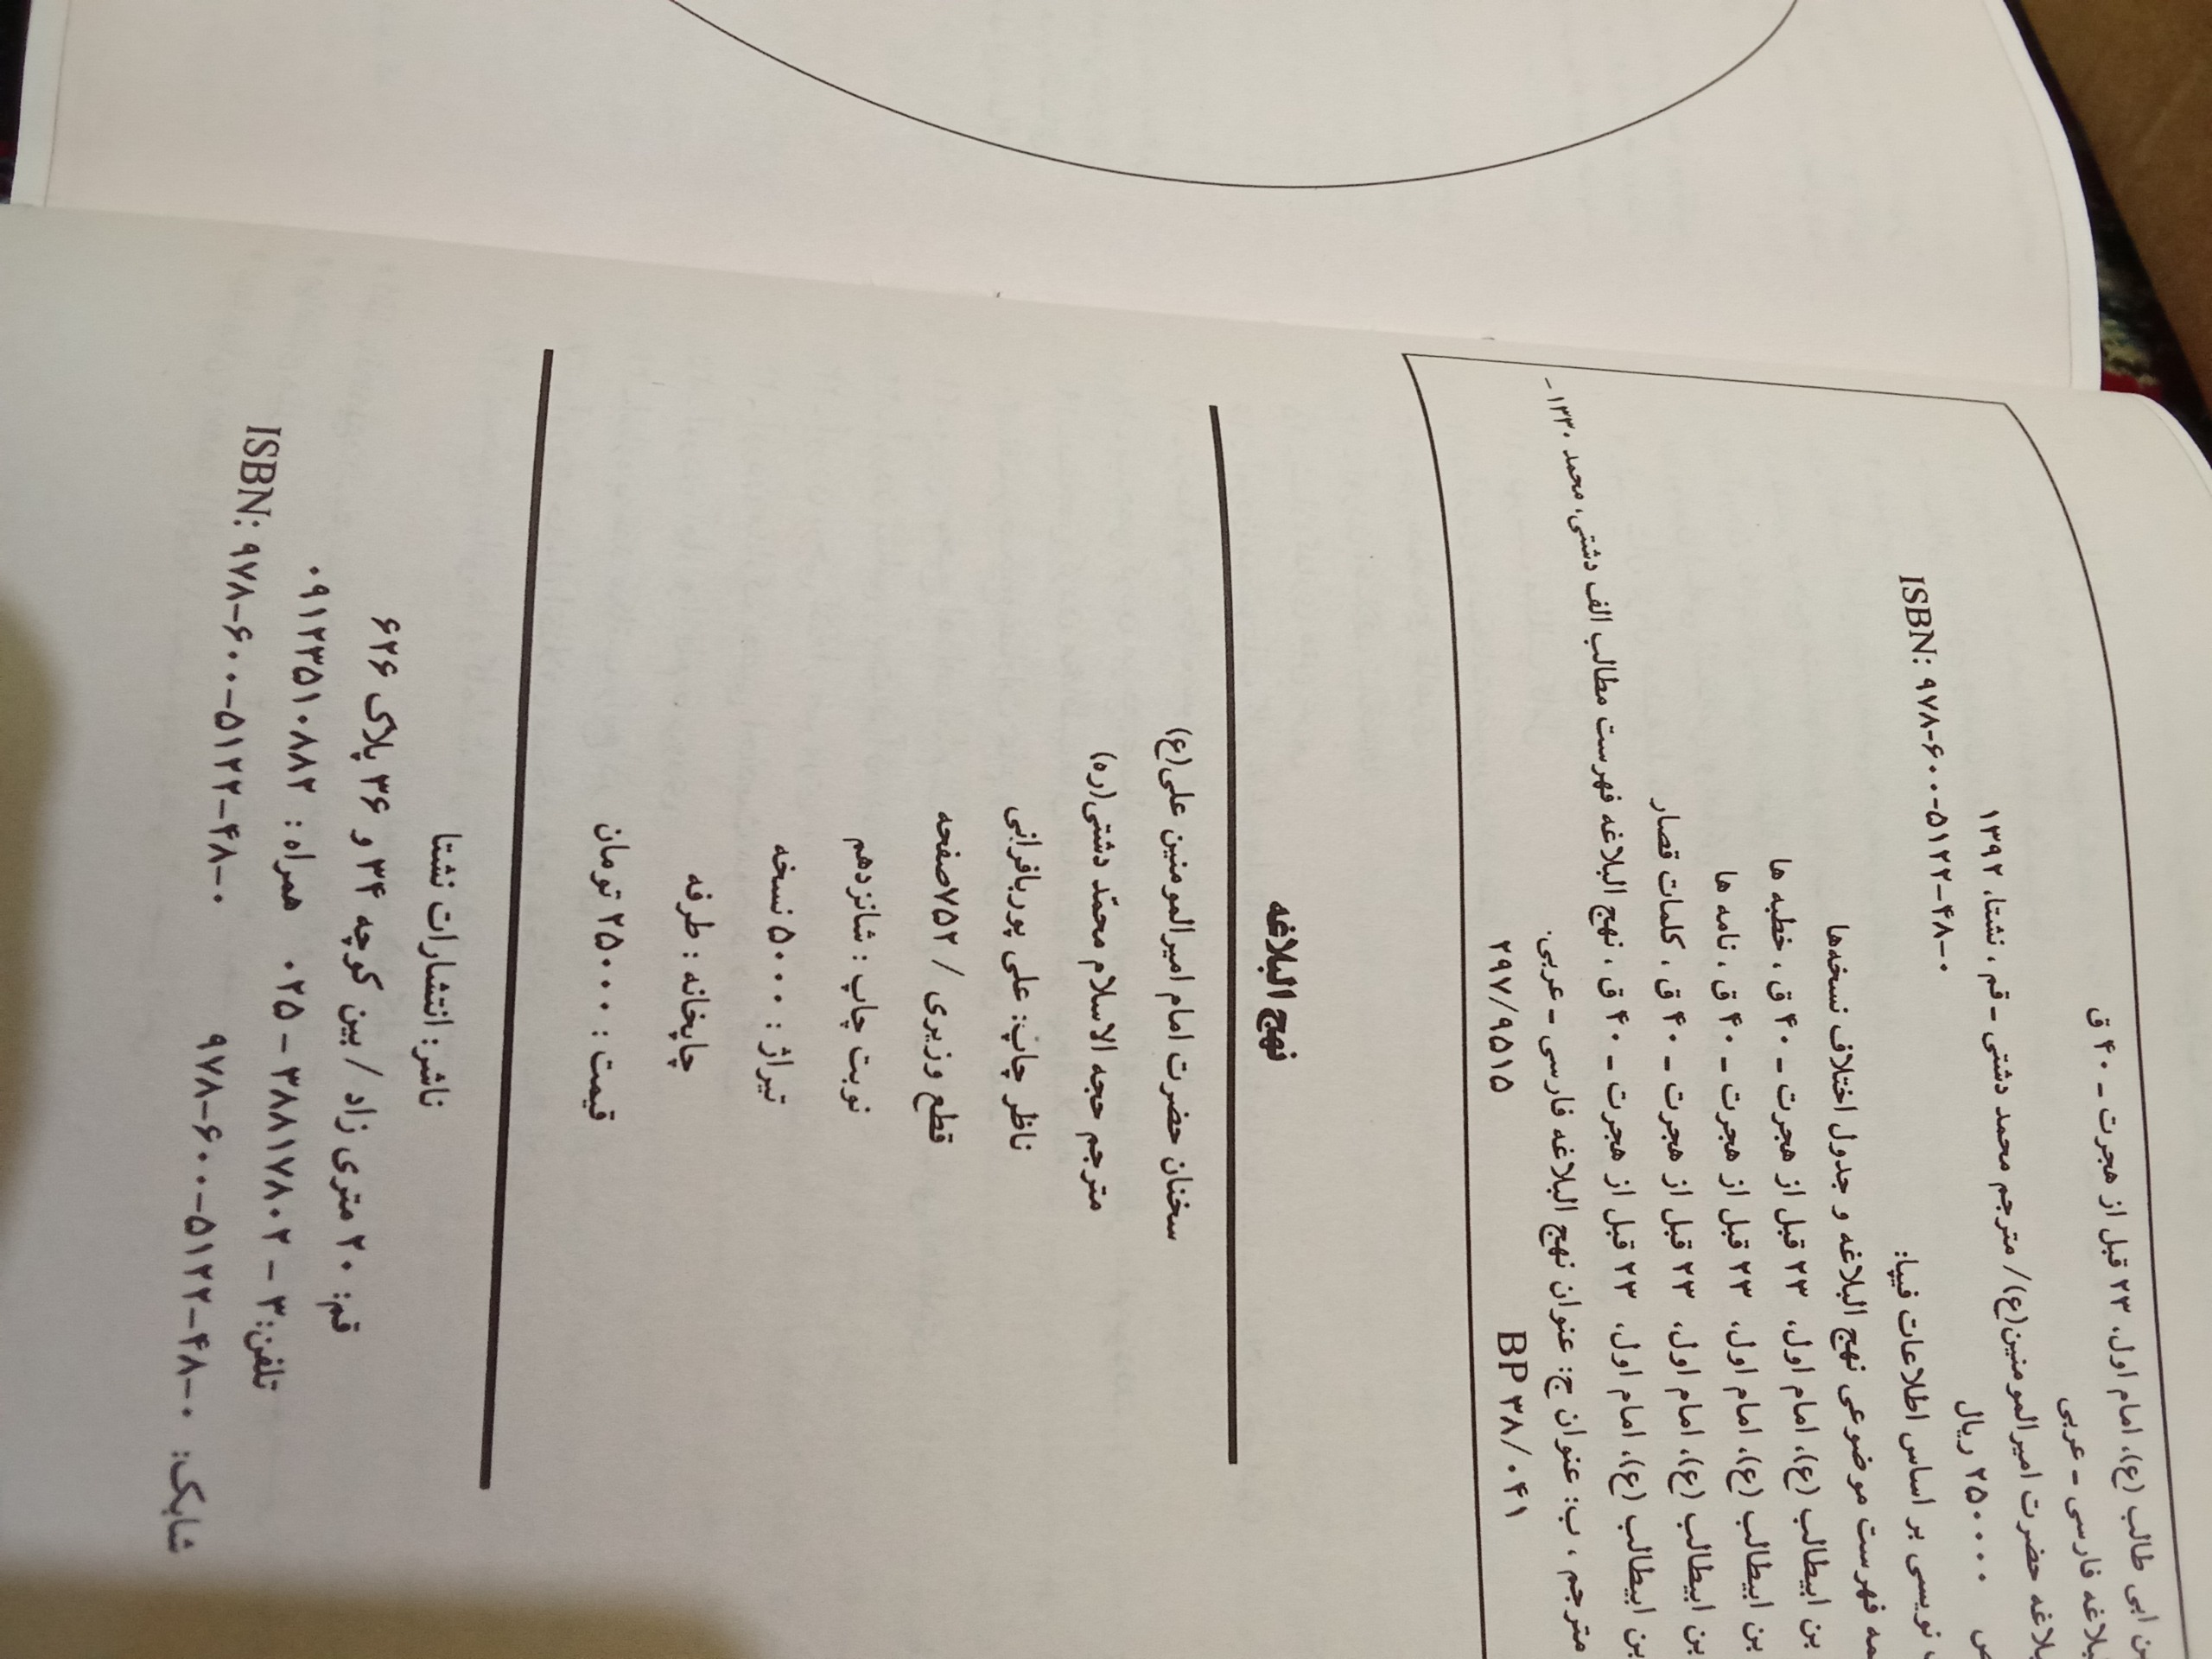 ن ابی طالب (ع)، امام اول، ۲۳ قبل از هجرت ـ ۴۰ ق
لاغه فارسی - عربی
لاغه حضرت امیرالمومنین(ع)/ مترجم محمد دشتی - قم ، نشتا، ۱۳۹۲
۲۵۰۰۰۰ ریال
ISBN: ۹۷۸-۶۰۰-۵۱۲۲-۴۸-۰
نویسی بر اساس اطلاعات فیپا:
مه فهرست موضوعی نهج البلاغه و جدول اختلاف نسخه‌ها
بن ابیطالب (ع)، امام اول، ۲۳ قبل از هجرت ـ ۴۰ ق ، خطبه ها
بن ابیطالب (ع)، امام اول، ۲۳ قبل از هجرت ـ ۴۰ ق ، نامه ها
بن ابیطالب (ع)، امام اول، ۲۳ قبل از هجرت ـ ۴۰ ق ، کلمات قصار
بن ابیطالب (ع)، امام اول، ۲۳ قبل از هجرت ـ ۴۰ ق ، نهج البلاغه فهرست مطالب الف دشتی، محمد ۱۳۳۰-
مترجم ، ب: عنوان ج: عنوان نهج البلاغه فارسی - عربی.
BP ۳۸/۰۴۱ ۲۹۷/۹۵۱۵
نهج البلاغه
سخنان حضرت امام امیرالمومنین علی(ع)
مترجم حجه الاسلام محمّد دشتی(ره)
ناظر چاپ: علی پوربافرانی
قطع وزیری / ۷۵۲صفحه
نوبت چاپ : شانزدهم
تیراژ : ۵۰۰۰ نسخه
چاپخانه : طرفه
قیمت : ۲۵۰۰۰ تومان
ناشر: انتشارات نشتا
قم: ۲۰ متری زاد / بین کوچه ۳۴ و ۳۶ پلاک ۶۲۶
تلفن: ۳ - ۳۸۸۱۷۸۰۲ - ۰۲۵ همراه : ۰۹۱۲۳۵۱۰۸۸۲
شابک: ۹۷۸-۶۰۰-۵۱۲۲-۴۸-۰ ISBN: ۹۷۸-۶۰۰-۵۱۲۲-۴۸-۰